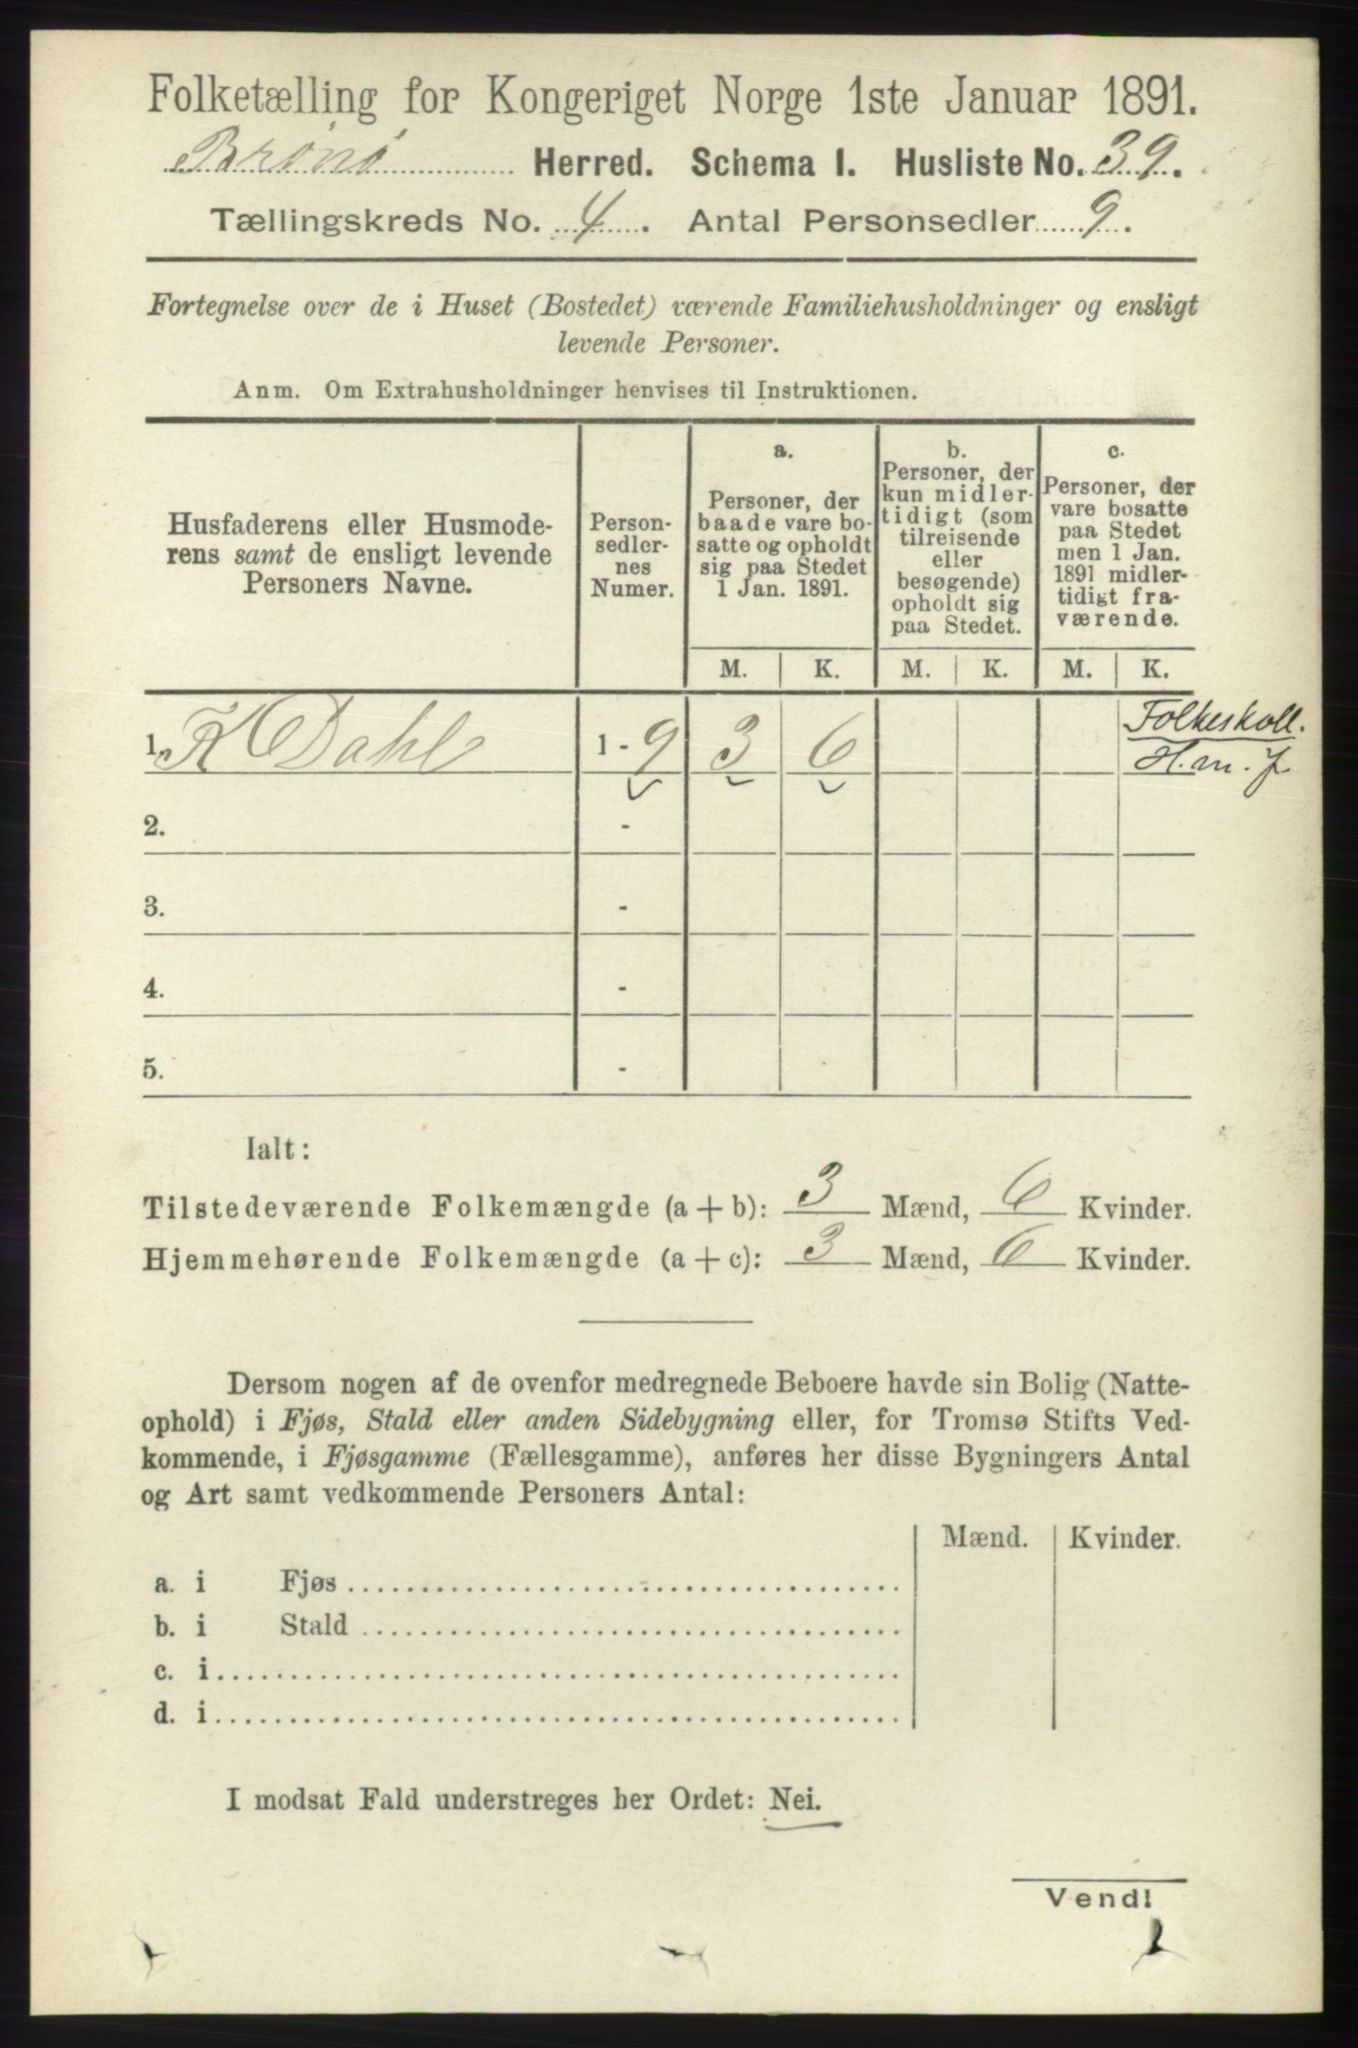 Folketælling for Kongeriget Norge 1ste Januar 1891.
Brønø Herred. Schema I. Husliste No. 39.
Tællingskreds No. 4. Antal Personsedler 9.
Fortegnelse over de i Huset (Bostedet) værende Familiehusholdninger og ensligt
levende Personer.
Anm. Om Extrahusholdninger henvises til Instruktionen.
Husfaderens eller Husmode-
rens samt de ensligt levende
Personers Navne.
Person-
sedler-
nes
Numer.
a.
Personer, der
baade vare bo-
satte og opholdt
sig paa Stedet
1 Jan. 1891.
b.
Personer, der
kun midler-
tidigt (som
tilreisende
eller
besøgende)
opholdt sig
paa Stedet.
c.
Personer, der
vare bosatte
paa Stedet
men 1 Jan.
1891 midler-
tidigt fra-
værende.
M. K. M. K. M. K.
1. K Dahl 1 - 9 3 6
Folkeskoll.
H.m.f
2. -
3. -
4. -
5. -
Ialt:
Tilstedeværende Folkemængde (a + b): 3 Mænd, 6 Kvinder.
Hjemmehørende Folkemængde (a + c): 3 Mænd, 6 Kvinder.
Dersom nogen af de ovenfor medregnede Beboere havde sin Bolig (Natte-
ophold) i Fjøs, Stald eller anden Sidebygning eller, for Tromsø Stifts Ved-
kommende, i Fjøsgamme (Fællesgamme), anføres her disse Bygningers Antal
og Art samt vedkommende Personers Antal:
Mænd. Kvinder.
a. i Fjøs
b. i Stald
c. i
d. i
I modsat Fald understreges her Ordet: Nei.
Vend!